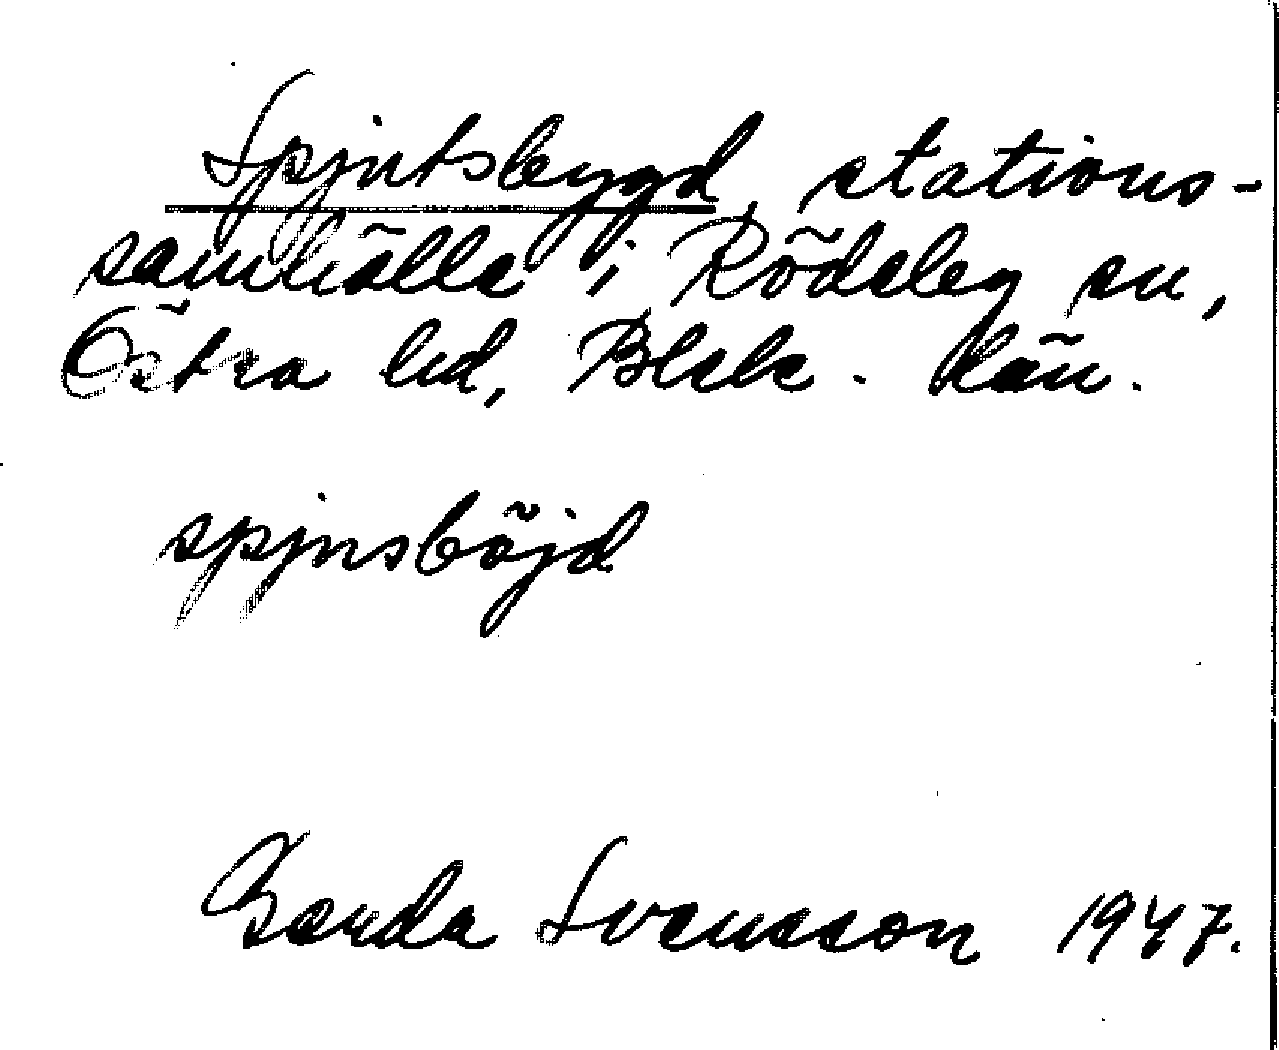 Spjutsbygd, stations-
samhälle i Rödeby sn,
Östra hd, Blek. län.
spjusböjd
Gerda Svensson 1947.